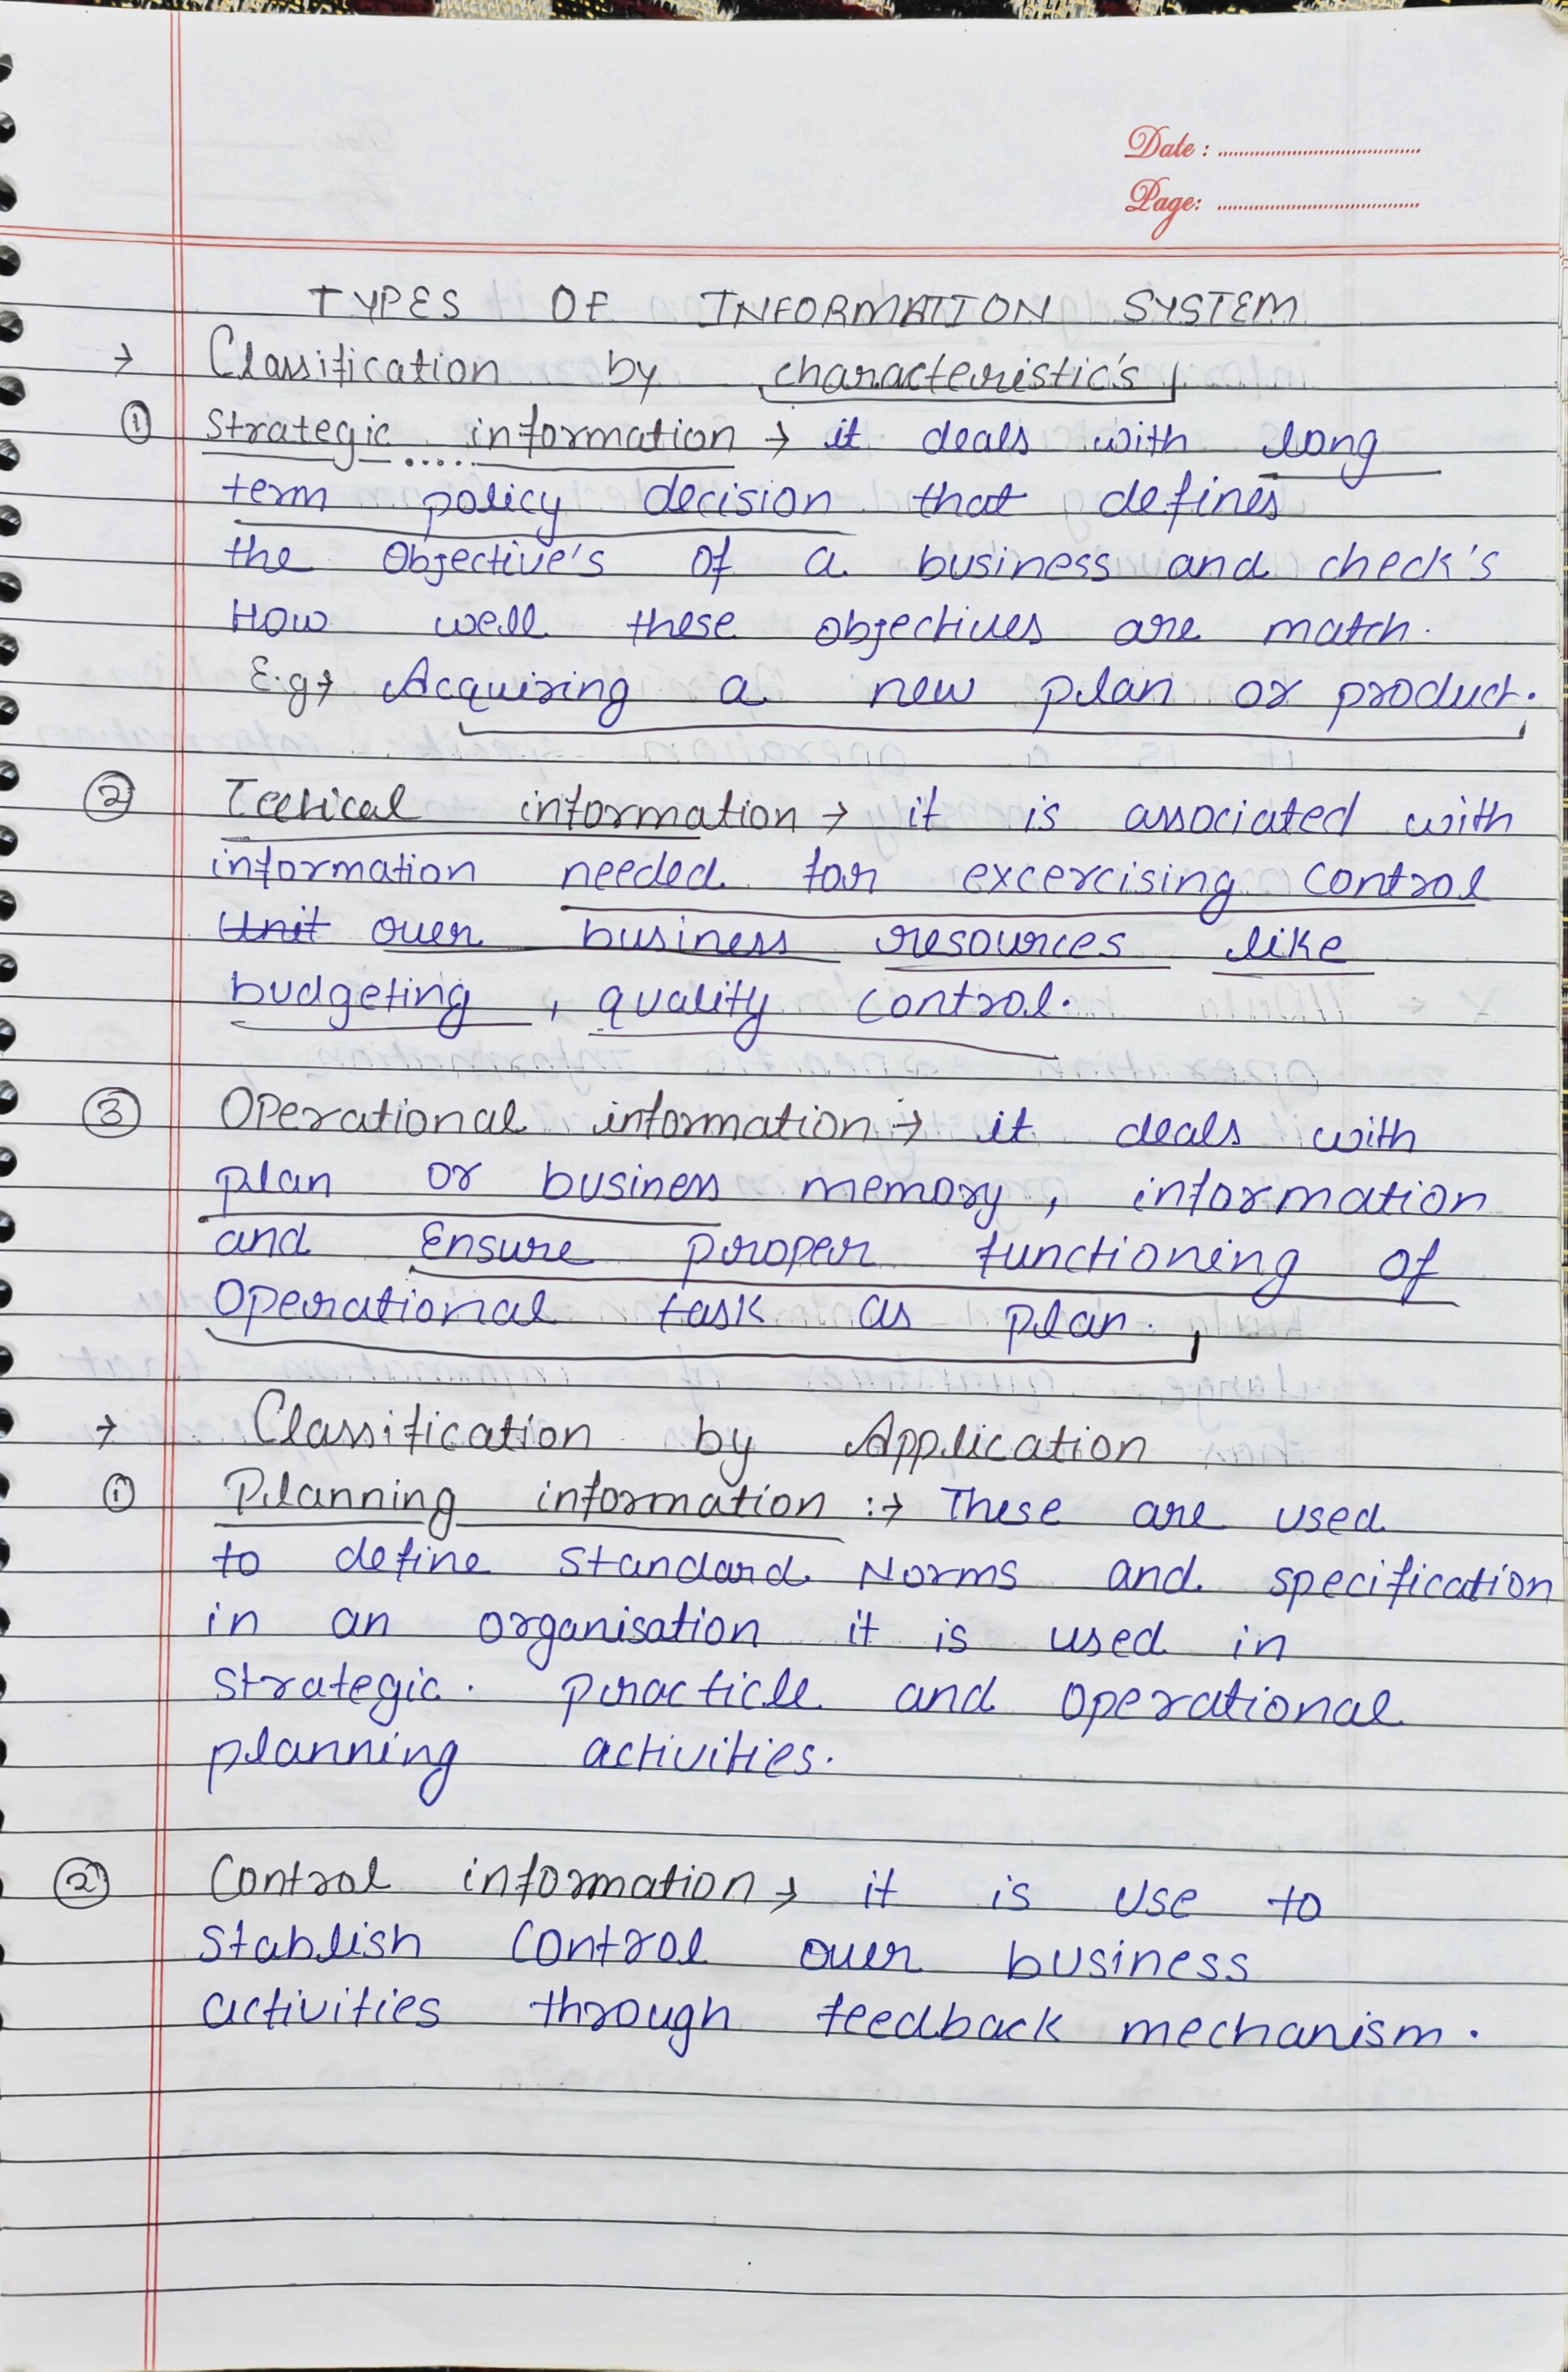 Date :
Page:
TYPES OF INFORMATION SYSTEM
→ Classification by characteristic's
① Strategic information → it deals with long
term policy decision that defines
the Objective's of a business and check's
How well these objectives are match.
E.g→ Acquiring a new plan or product.
② Tectical information → it is associated with
information needed for excercising control
Unit over business resources like
budgeting , quality control.
③ Operational information → it deals with
plan or business memory, information
and Ensure proper functioning of
Operational task as plan.
→ Classification by Application
① Planning information :→ These are used
to define standard Norms and specification
in an organisation it is used in
strategic. practicle and operational
planning activities.
② Control information → it is use to
stablish control over business
activities through feedback mechanism.